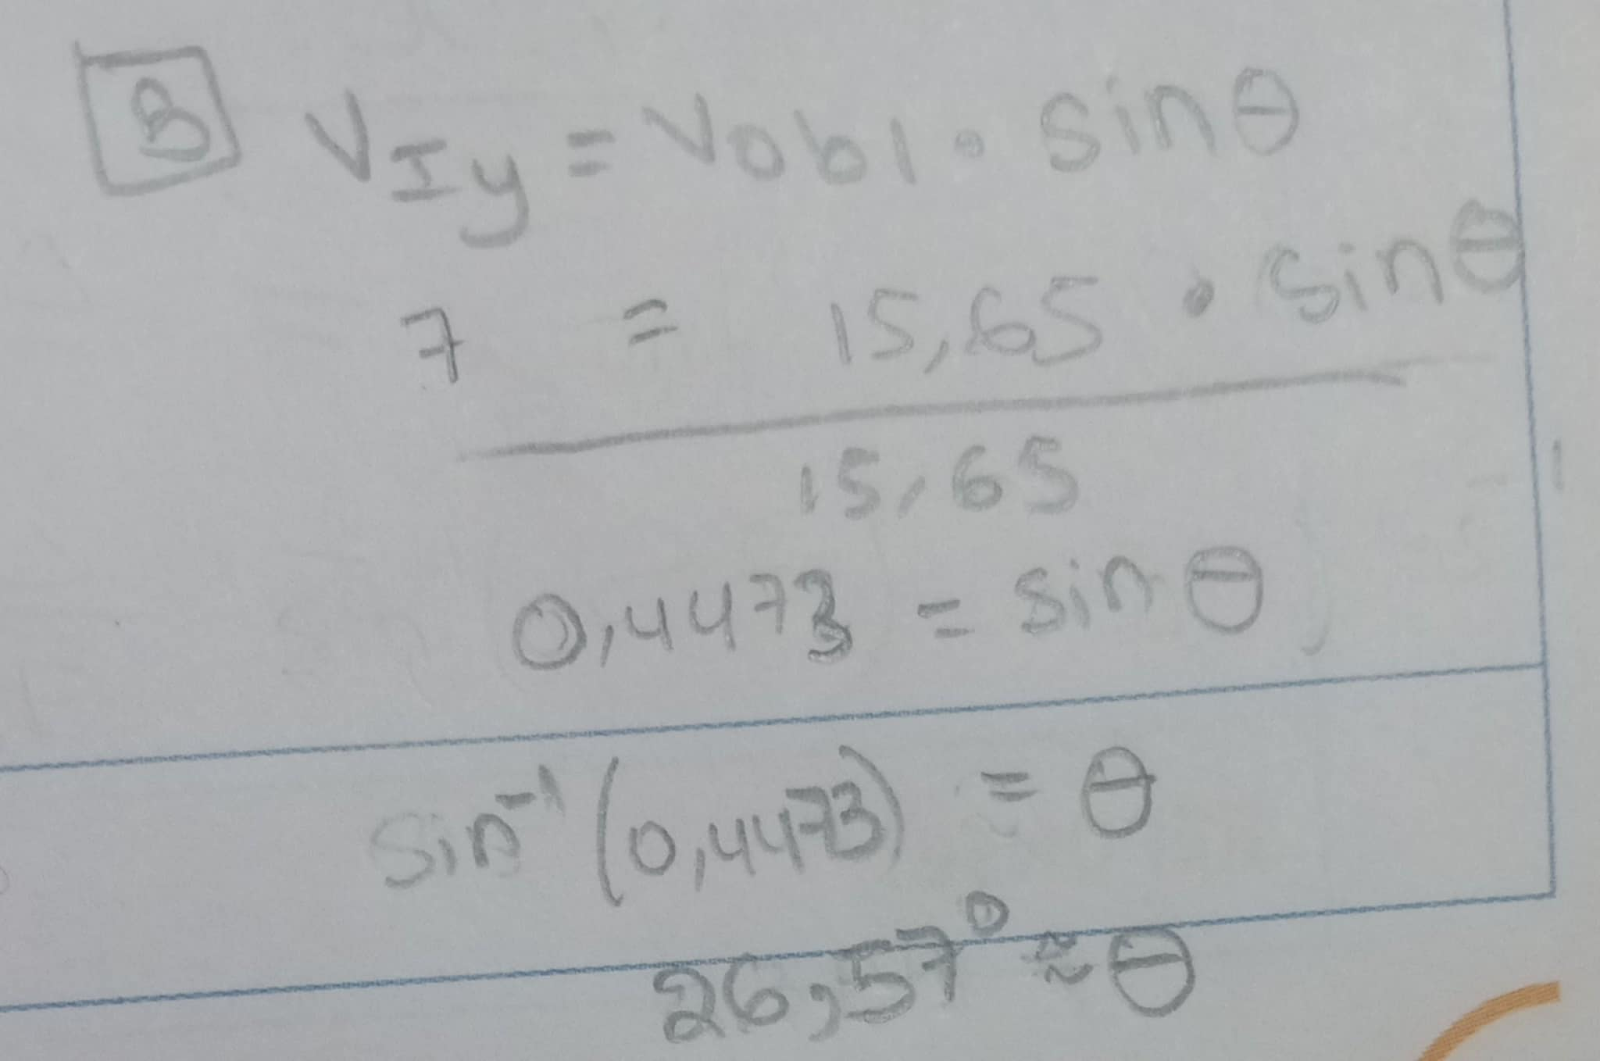 B V_Iy = Vobl · sinθ
7 = 15,65 · sinθ
15,65
0,4473 = sinθ
sin⁻¹(0,4473) = θ
26,57° ≈ θ